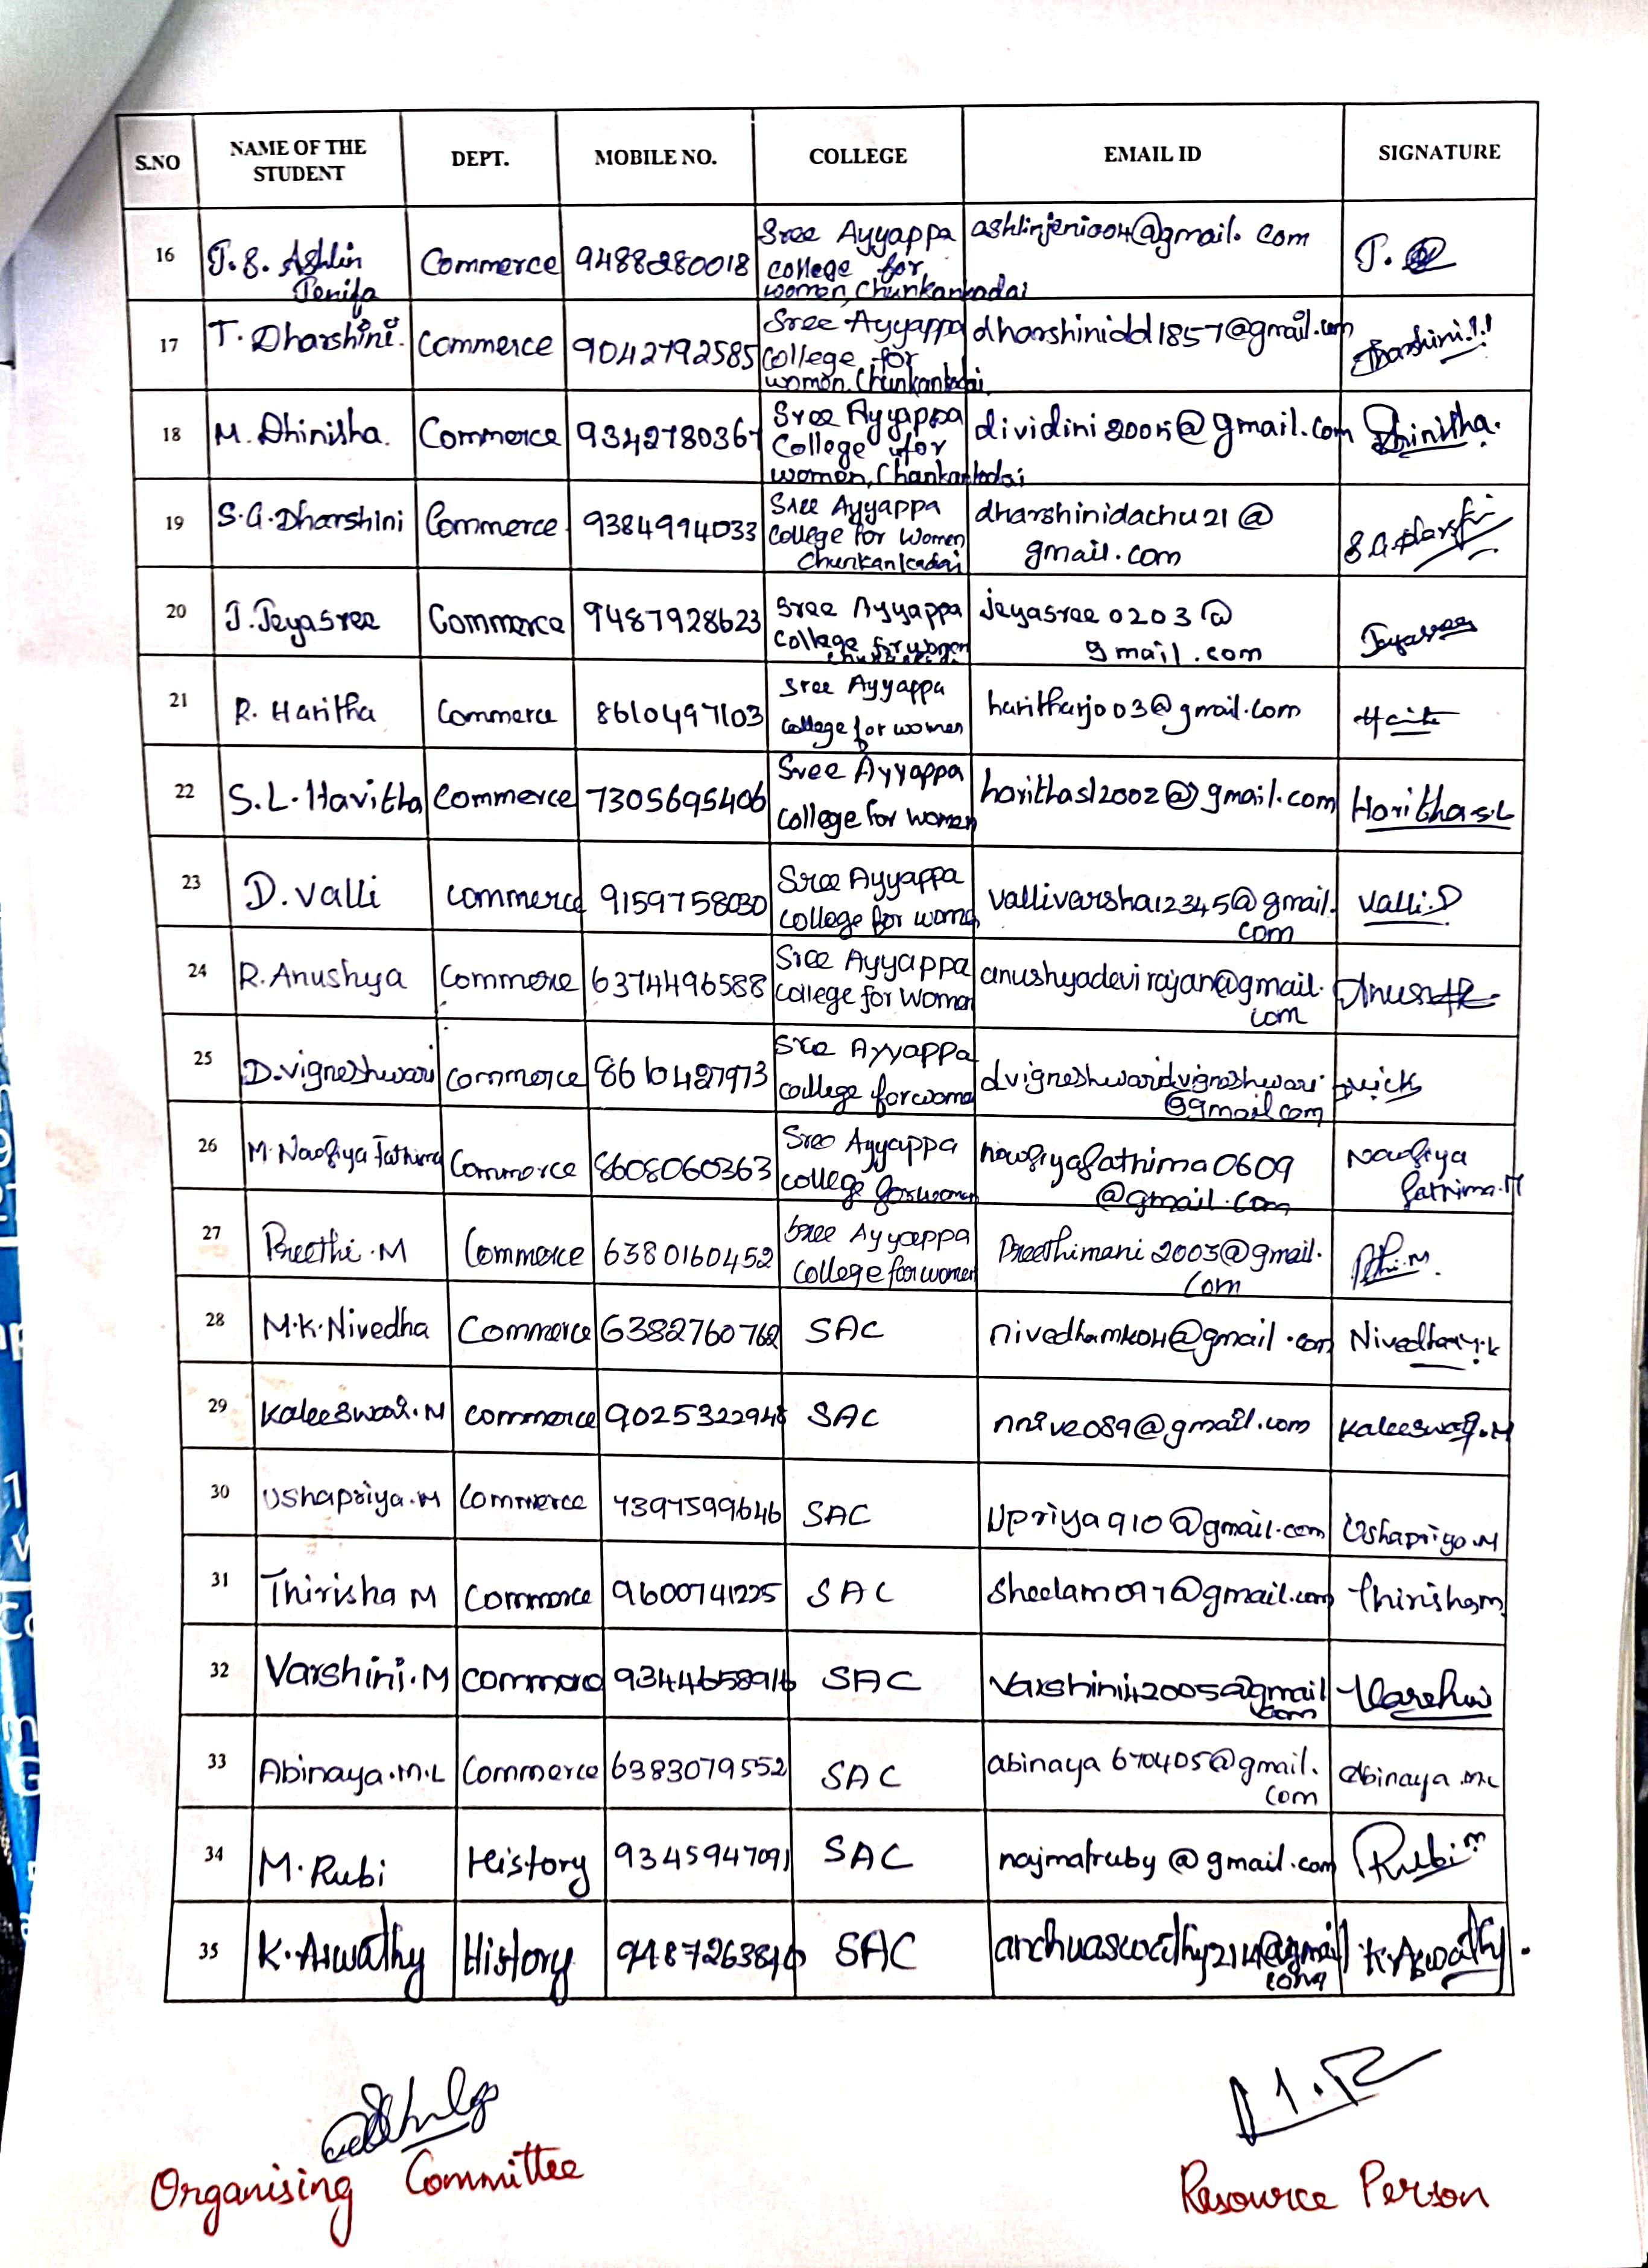 S.NO NAME OF THE STUDENT DEPT. MOBILE NO. COLLEGE EMAIL ID SIGNATURE
16 J.S. Ashlin Jenifa Commerce 9488280018 Sree Ayyappa college for women, Chunkankadai ashlinjeni004@gmail.com J.
17 T. Dharshini. Commerce 9042792585 Sree Ayyappa College for women, Chunkankadai dharshinidd1857@gmail.com Dharshini.T
18 M. Dhinisha. Commerce 9342780367 Sree Ayyappa College for women, Chankankadai dividini2005@gmail.com Dhinisha.
19 S.G. Dharshini Commerce 9384994033 Sree Ayyappa College for Women Chunkankadai dharshinidachu21@ gmail.com
20 J. Jeyasree Commerce 9487928623 Sree Ayyappa College for women jeyasree0203@ gmail.com Jeyasree
21 R. Haritha Commerce 8610497103 Sree Ayyappa college for women haritharj003@gmail.com
22 S.L. Havitha Commerce 7305695406 Sree Ayyappa College for women harithasl2002@gmail.com Haritha.S.L
23 D. Valli commerce 9159758030 Sree Ayyappa college for women vallivarsha12345@gmail. com Valli.D
24 R. Anushya Commerce 6374496588 Sree Ayyappa College for Women anushyadevirajan@gmail. com
25 D. vigneshwari commerce 8610427973 Sree Ayyappa college for women dvigneshwaridvigneshwari @gmail.com
26 M. Naofiya Fathima Commerce 8608060363 Sree Ayyappa college for women naofiyafathima0609 @gmail.com Naofiya fathima.M
27 Preethi.M Commerce 6380160452 Sree Ayyappa College for women Preethimani2003@gmail. Com
28 M.K. Nivedha Commerce 6382760762 SAC nivedhamk04@gmail.com Nivedha.M.k
29 Kaleeswari.M commerce 9025322948 SAC nnive089@gmail.com Kaleeswari.M
30 Ushapriya.M Commerce 7397599646 SAC Upriya910@gmail.com Ushapriya.M
31 Thirisha M Commerce 9600741225 SAC Sheelam097@gmail.com Thirisha.M
32 Varshini.M commerce 9344658916 SAC Varshini42005@gmail com Varshini
33 Abinaya.M.L Commerce 6383079552 SAC abinaya670405@gmail. com Abinaya.M.L
34 M. Rubi History 9345947091 SAC najmafruby@gmail.com Rubi M
35 K. Aswathy History SAC archuaswathy214@gmail com K. Aswathy.
Organising Committee Resource Person